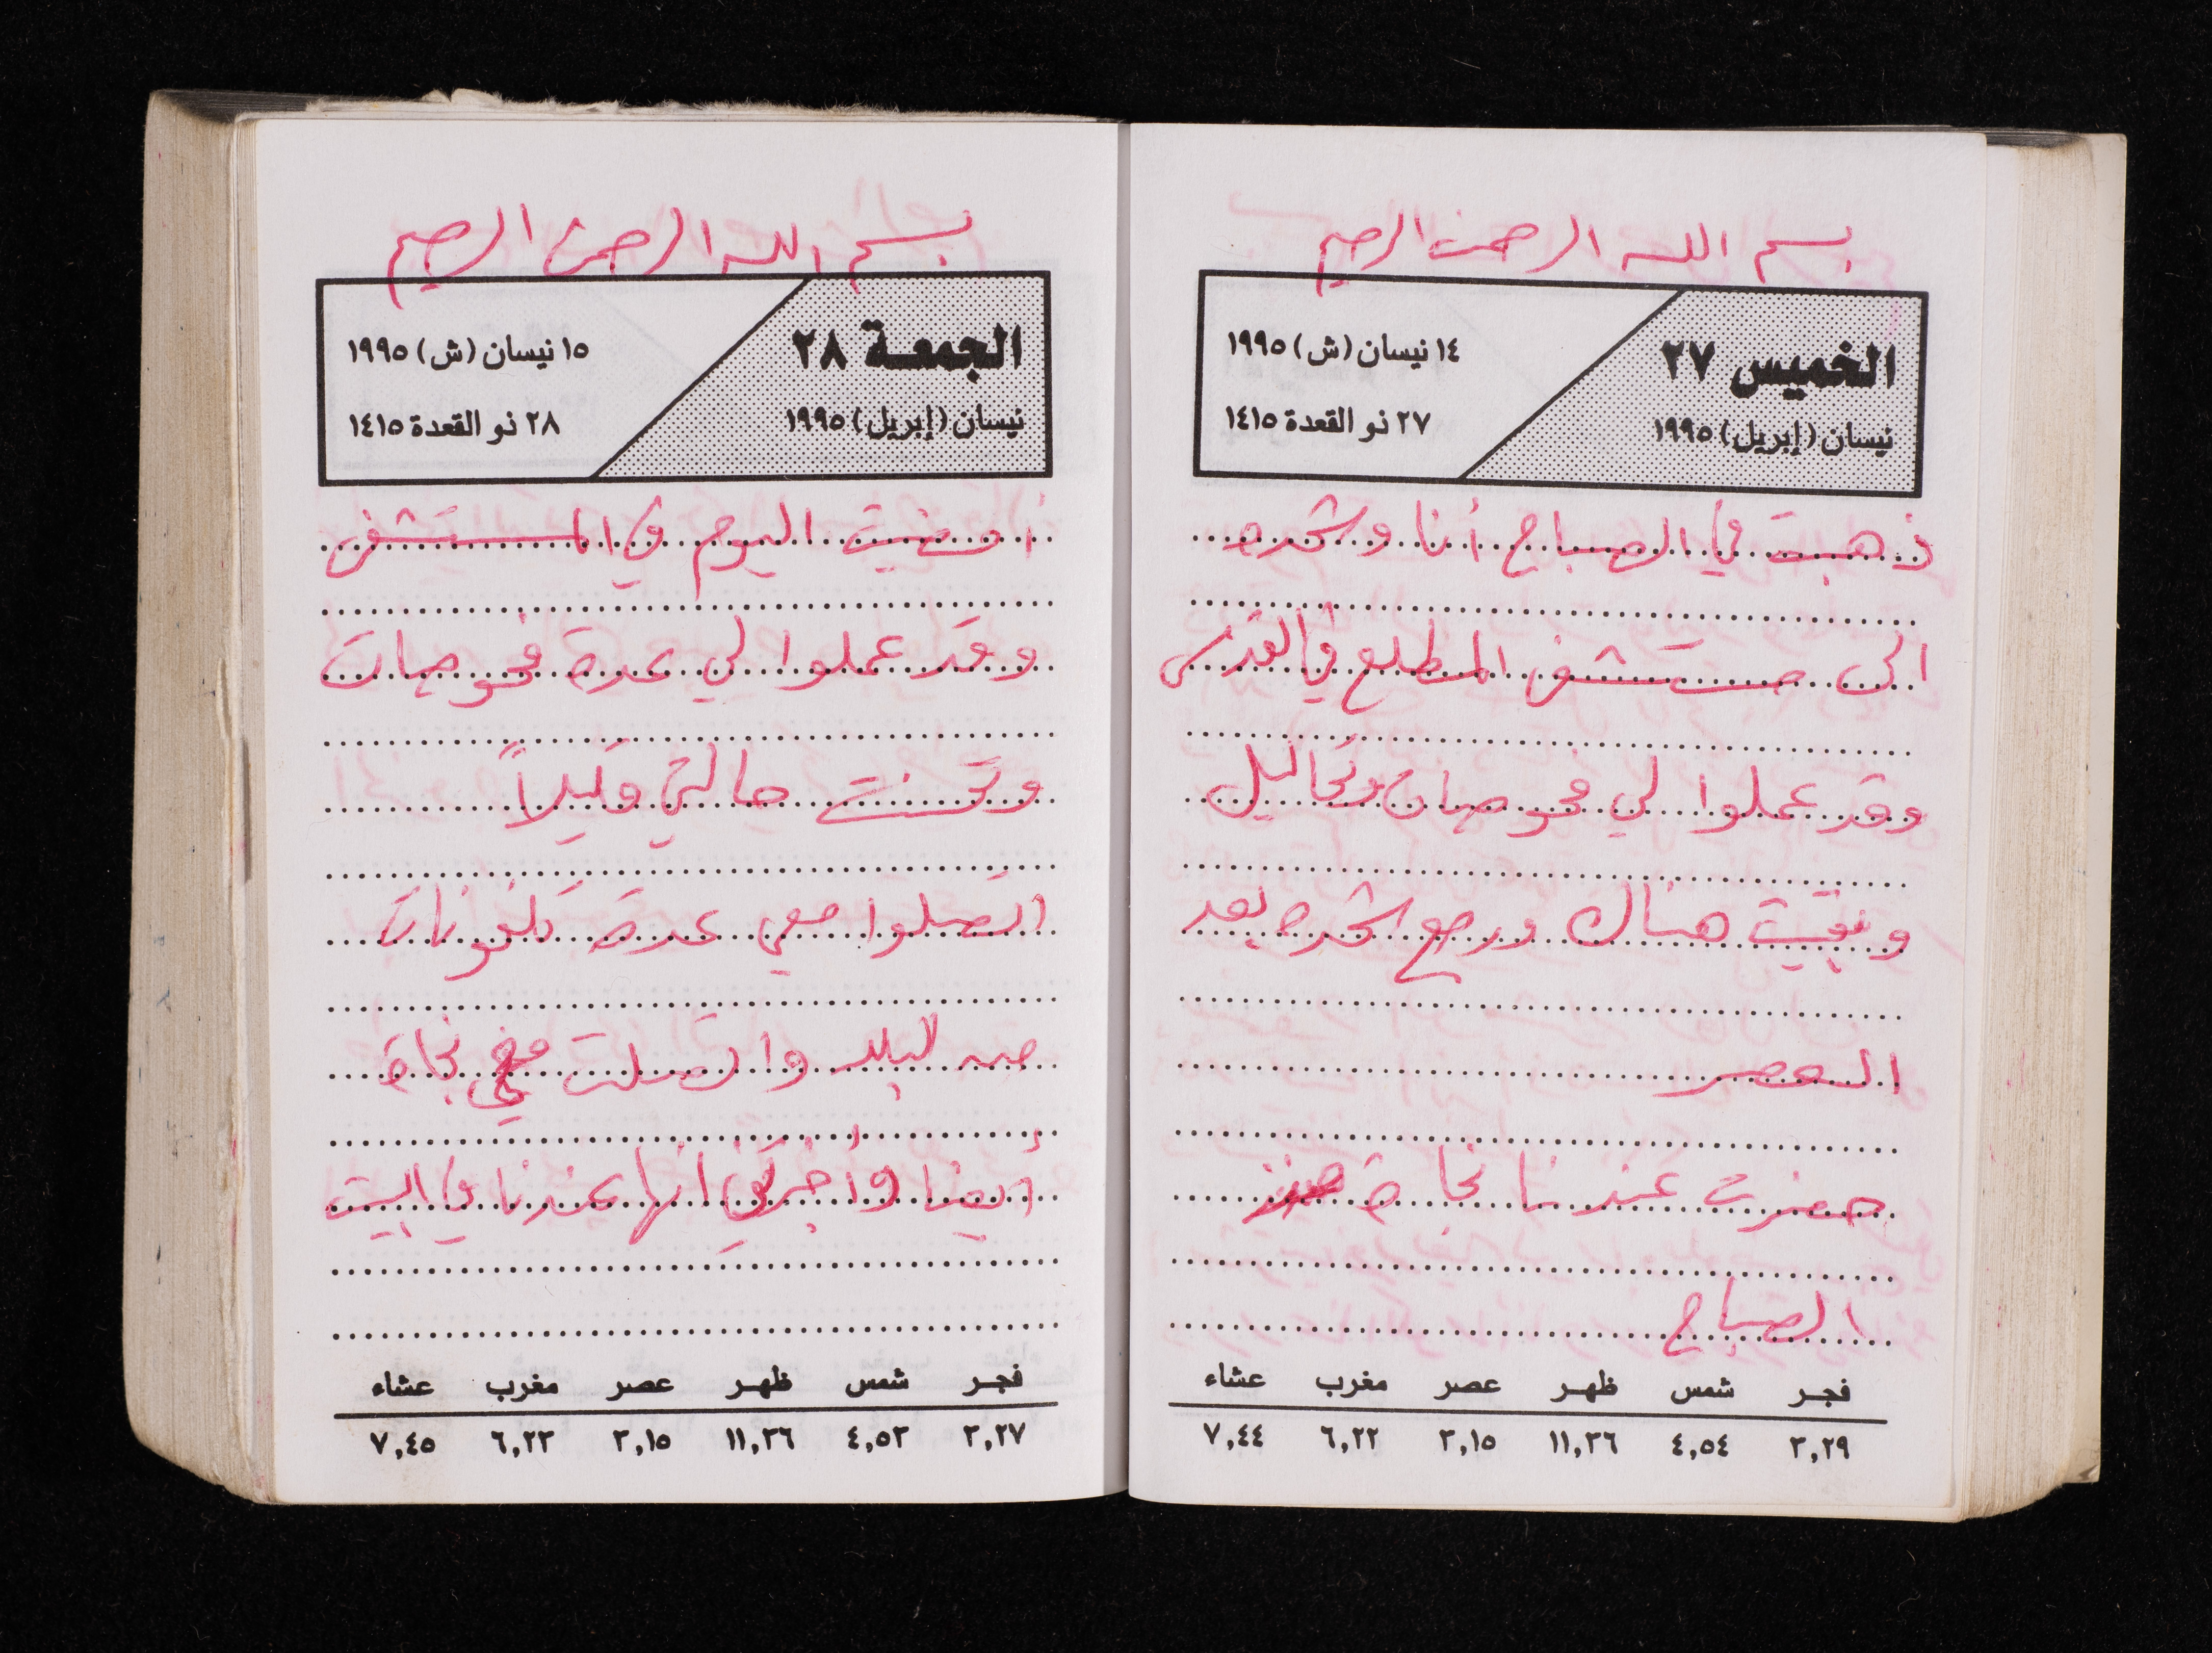 بسم الله الرحمن الرحيم
الخميس ٢٧
نيسان (إبريل) ١٩٩٥
١٤ نيسان (ش) ١٩٩٥
٢٧ ذو القعدة ١٤١٥
ذهبت في الصباح أنا وشحده
الى مستشفى المطلع في القدس
وقد عملوا لي فحوصات وتحاليل
وبقيت هناك ورجع شحده بعد
العصر
حضرت عندنا نجاة منذ
الصباح
فجر شمس ظهر عصر مغرب عشاء
٣,٢٩ ٤,٥٤ ١١,٣٦ ٣,١٥ ٦,٢٢ ٧,٤٤
بسم الله الرحمن الرحيم
الجمعة ٢٨
نيسان (إبريل) ١٩٩٥
١٥ نيسان (ش) ١٩٩٥
٢٨ ذو القعدة ١٤١٥
امضيت اليوم في المستشفى
وقد عملوا لي عدة فحوصات
وتحسنت حالتي قليلاً
اتصلوا معي عدة تلفونات
من البلد واتصلت معي نجاة
أيضا وأخبرتني انها عندنا في البيت
فجر شمس ظهر عصر مغرب عشاء
٣,٢٧ ٤,٥٣ ١١,٣٦ ٣,١٥ ٦,٢٣ ٧,٤٥